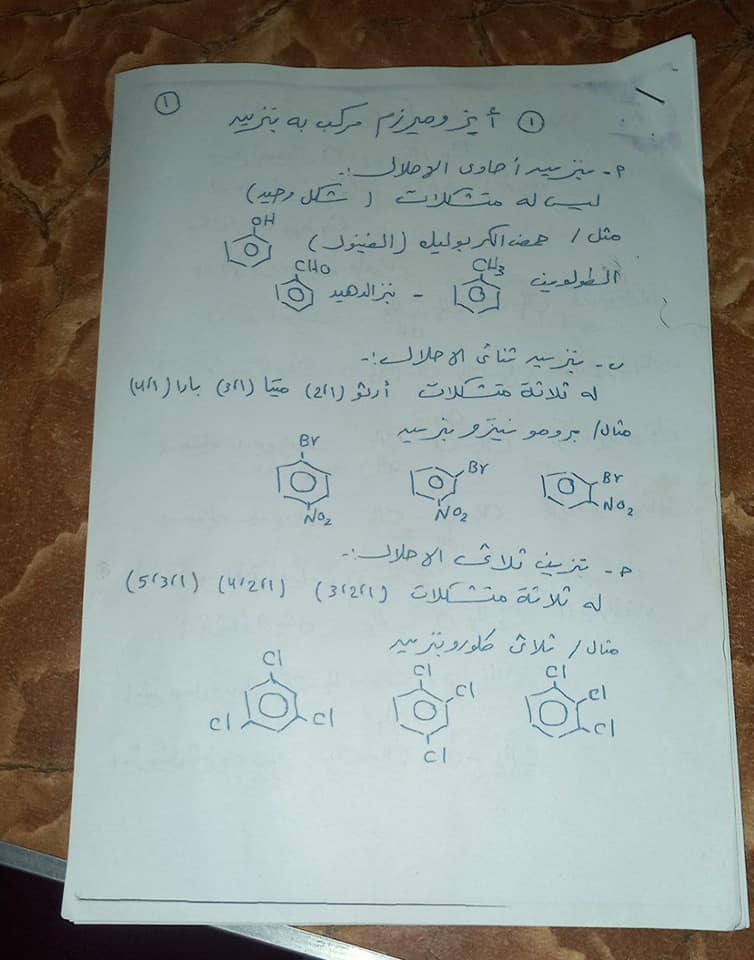 ١
① أيزوميرزم مركب به بنزيد
٢ - بنزيد أحادى الاحلال :-
ليس له متشكلات (شكل وحيد)
مثل / حمض الكربوليك (الفينول)
OH
الطولوين CH3 - بنزالدهيد CHO
ب - بنزيد ثنائى الاحلال :-
له ثلاثة متشكلات أرثو (2،1) ميتا (3،1) بارا (4،1)
مثال / برومو نيترو بنزيد
Br
NO2
Br
NO2
Br
NO2
ح - بنزيد ثلاثى الاحلال :-
له ثلاثة متشكلات (3،2،1) (4،2،1) (5،3،1)
مثال / ثلاثى كلوروبنزيد
Cl
Cl
Cl
Cl
Cl
Cl
Cl
Cl
Cl